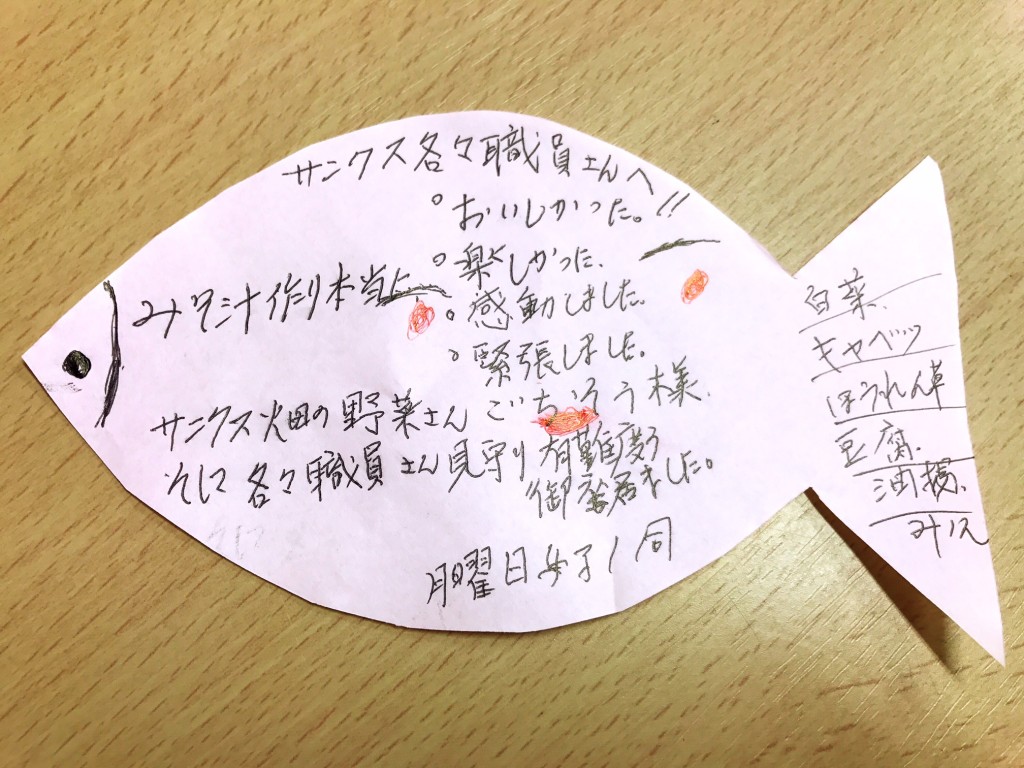 サンクス各々職員さんへ
みそ汁作り本当に
° おいしかった。!!
° 楽しかった、
° 感動しました。
° 緊張しました。
サニクス畑の野菜さん ごちそう様、
そして各々職員さん見守り有難う
御座居ました。
月曜日女子1同
白菜、
キャベツ
ほうれん草
豆腐、
油揚、
みそ